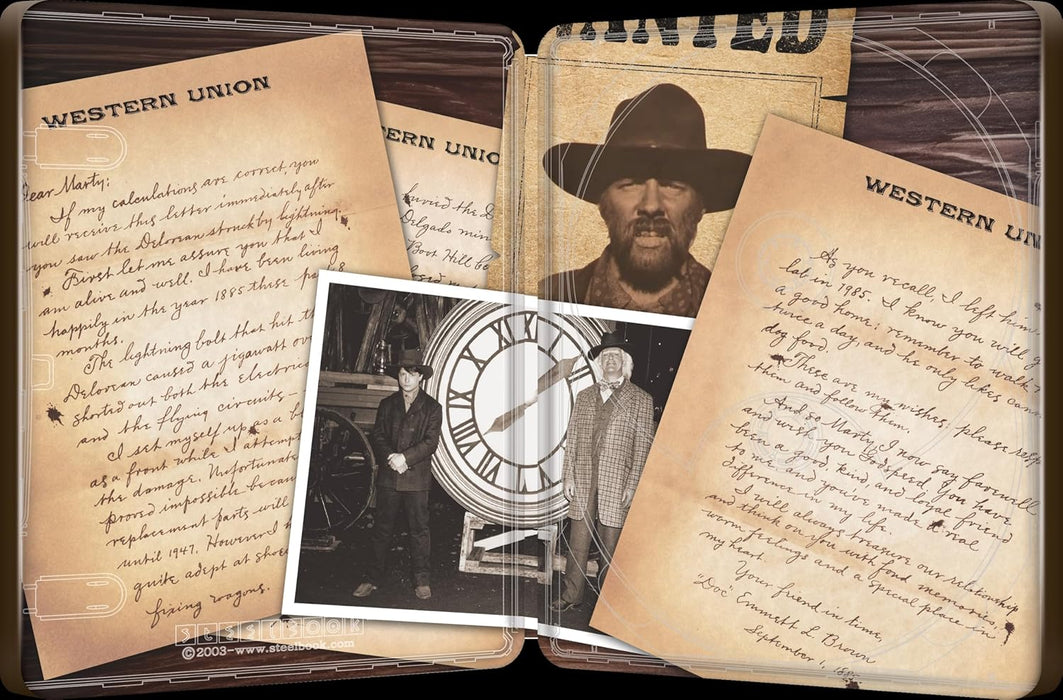 WESTERN UNION
ear Marty:
If my calculations are correct, you
will receive this letter immediately after
you saw the Delorean struck by lightning.
First let me assure you that I
am alive and well. I have been living
happily in the year 1885 these pa 8
months.
The lightning bolt that hit th
Delorean caused a jigawatt ove
shorted out both the electrica
and the flying circuits -
I set myself up as a b
as a front while I attempt
the damage. Unfortunate
proved impossible becau
replacement parts will
until 1947. However I
quite adept at shoei
fixing wagons.
ERN UNIO
buried the D
Delgado min
Boot Hill
WANTED
WESTERN UN
As you recall, I left him
lab in 1985. I know you will g
a good home: remember to walk h
twice a day, and he only likes cann
dog food.
These are my wishes; please resp
them and follow them.
And so Marty, I now say farewell
and wish you Godspeed. You have
been a good, kind, and loyal friend
to me and you've made a real
difference in my life.
I will always treasure our relationship
and think on you with fond memories,
warm feelings and a special place in
my heart.
Your friend in time,
"Doc" Emmett L. Brown
September 1, 1885
STEELBOOK
©2003-www.steelbook.com